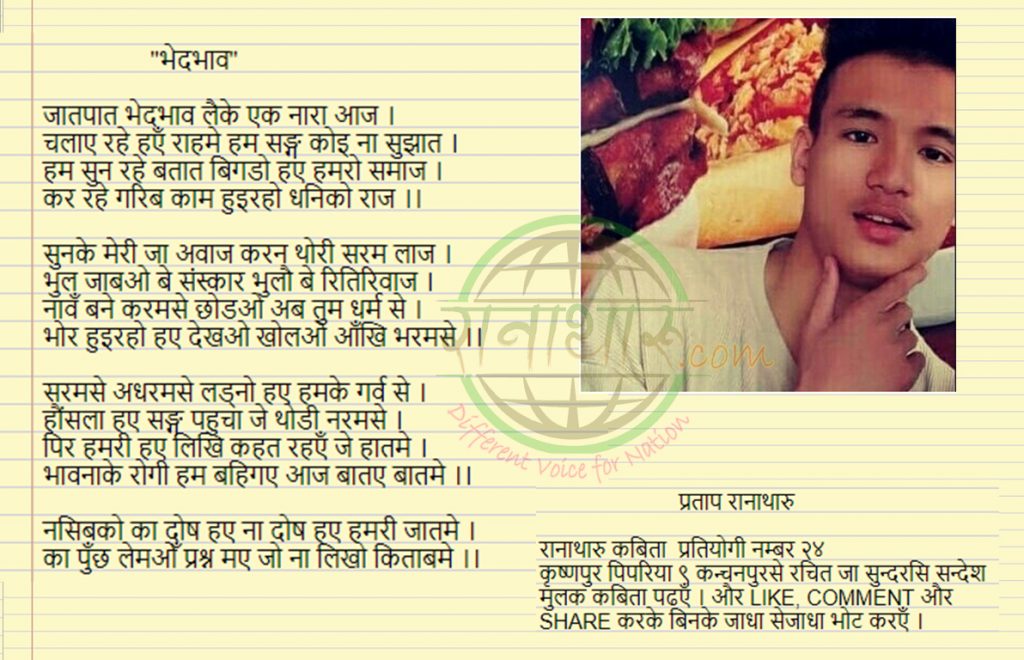 "भेदभाव"
जातपात भेदभाव लैके एक नारा आज ।
चलाए रहे हएँ राहमे हम सङ्ग कोइ ना सुझात ।
हम सुन रहे बतात बिगडो हए हमरो समाज ।
कर रहे गरिब काम हुइरहो धनिको राज ।।
सुनके मेरी जा अवाज करन थोरी सरम लाज ।
भुल जाबओ बे संस्कार भुलौ बे रितिरिवाज ।
नावँ बने करमसे छोडओ अब तुम धर्म से ।
भोर हुइरहो हए देखओ खोलओ आँखि भरमसे ।।
सरमसे अधरमसे लड्नो हए हमके गर्व से ।
हौंसला हए सङ्ग पहुचा जे थोडी नरमसे ।
पिर हमरी हए लिखि कहत रहएँ जे हातमे ।
भावनाके रोगी हम बहिगए आज बातए बातमे ।।
नसिबको का दोष हए ना दोष हए हमरी जातमे ।
का पुँछ लेमओँ प्रश्न मए जो ना लिखो किताबमे ।।
रानाथारु
.com
Different Voice for Nation
प्रताप रानाथारु
रानाथारु कबिता प्रतियोगी नम्बर २४
कृष्णपुर पिपरिया ९ कन्चनपुरसे रचित जा सुन्दरसि सन्देश
मुलक कबिता पढएँ । और LIKE, COMMENT और
SHARE करके बिनके जाधा सेजाधा भोट करएँ ।